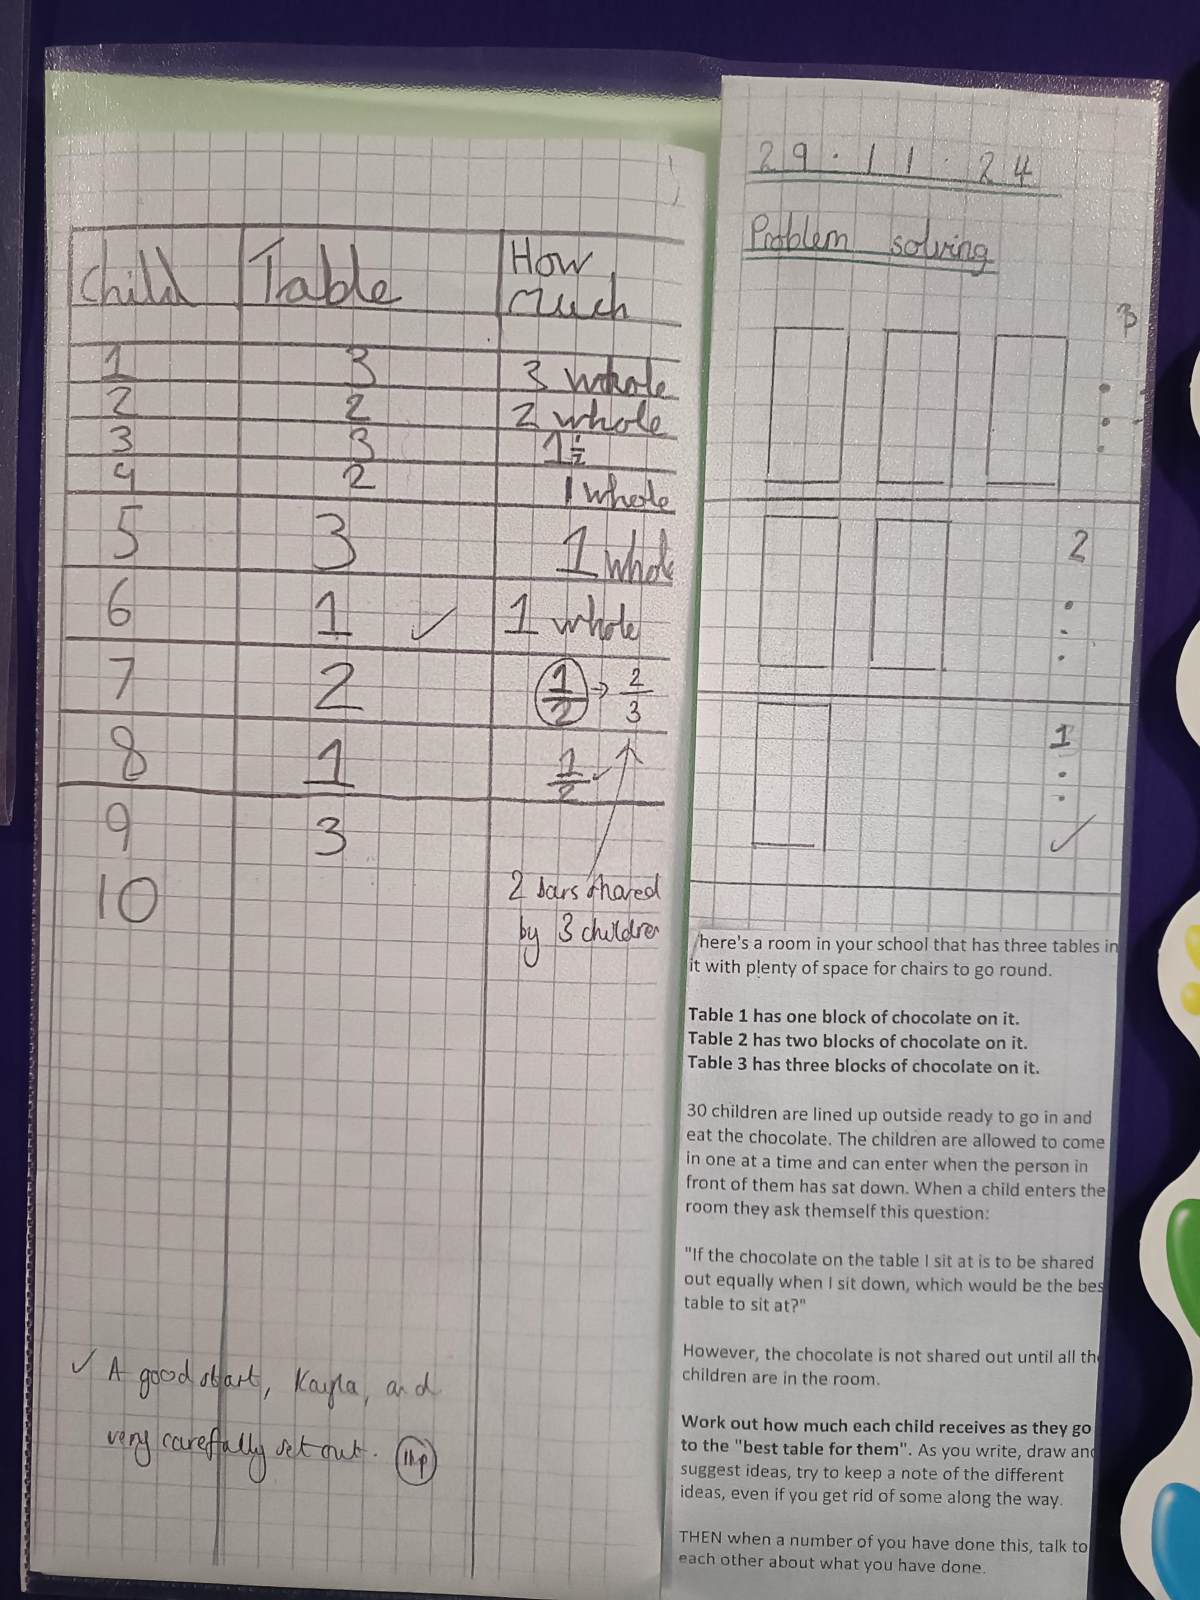 Child Table How much
1 3 3 whole
2 2 2 whole
3 3 1 1/2
4 2 1 whole
5 3 1 whol
6 1 ✓ 1 whole
7 2 1/2 → 2/3
8 1 1/2 ✓
9 3
10
2 bars shared
by 3 children
✓ A good start, Kayla, and
very carefully set out. 1hp
29.11.24
Problem solving
3
2
1
✓
here's a room in your school that has three tables in
it with plenty of space for chairs to go round.
Table 1 has one block of chocolate on it.
Table 2 has two blocks of chocolate on it.
Table 3 has three blocks of chocolate on it.
30 children are lined up outside ready to go in and
eat the chocolate. The children are allowed to come
in one at a time and can enter when the person in
front of them has sat down. When a child enters the
room they ask themself this question:
"If the chocolate on the table I sit at is to be shared
out equally when I sit down, which would be the bes
table to sit at?"
However, the chocolate is not shared out until all th
children are in the room.
Work out how much each child receives as they go
to the "best table for them". As you write, draw and
suggest ideas, try to keep a note of the different
ideas, even if you get rid of some along the way.
THEN when a number of you have done this, talk to
each other about what you have done.